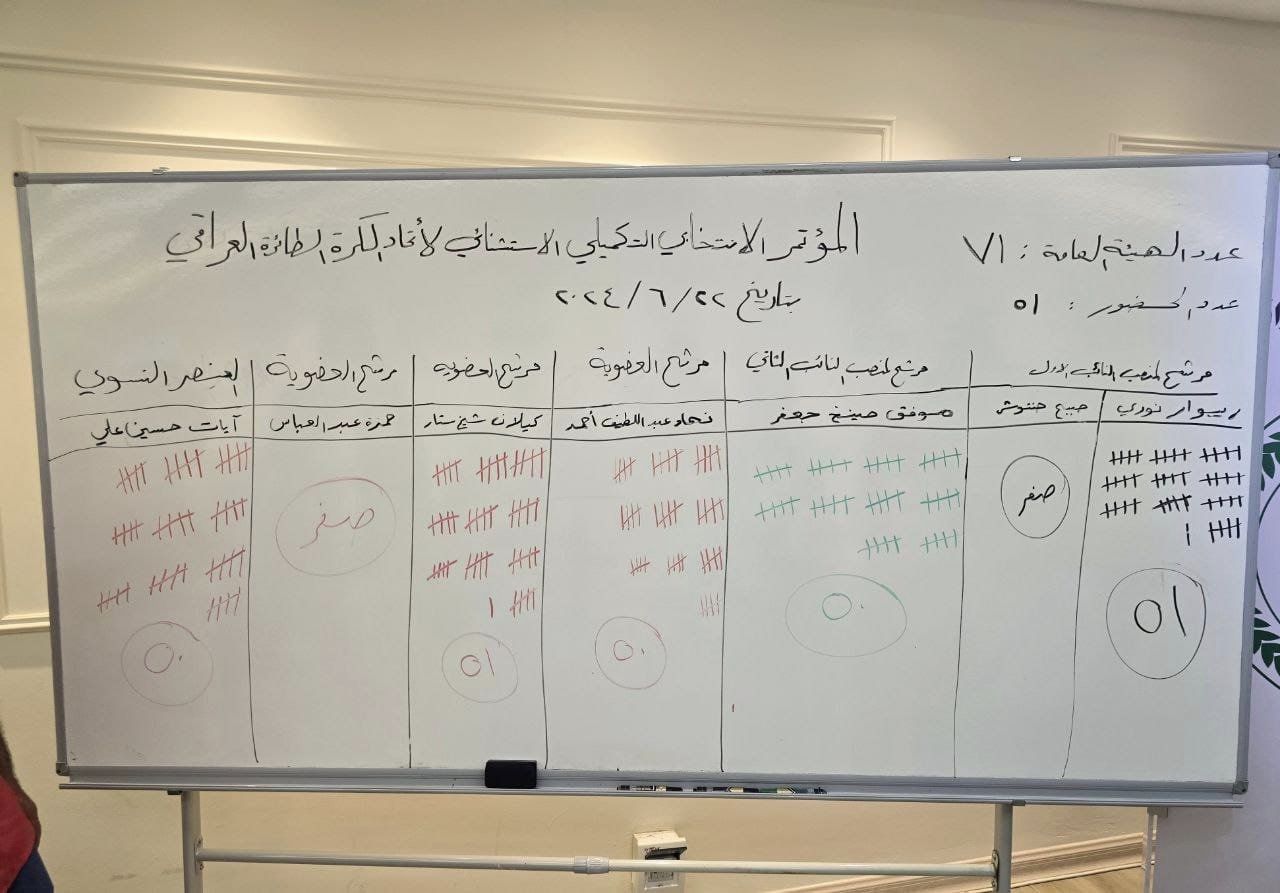 المؤتمر الانتخابي التكميلي الاستثنائي لأتحاد الكرة الطائرة العراقي
بتاريخ ٢٠٢٤/٦/٢٢
عدد الهيئة العامة : ٧١
عدد الحضور : ٥١
مرشح لمنصب النائب الاول
مرشح لمنصب النائب الثاني
مرشح العضوية
مرشح العضوية
مرشح العضوية
العنصر النسوي
ريبوار نوري
صبيح حنتوش
موفق حسين جعفر
نهاد عبد اللطيف أحمد
كيلان شيخ ستار
حمزة عبد العباس
آيات حسين علي
صفر
صفر
٥١
٥٠
٥٠
٥١
٥٠